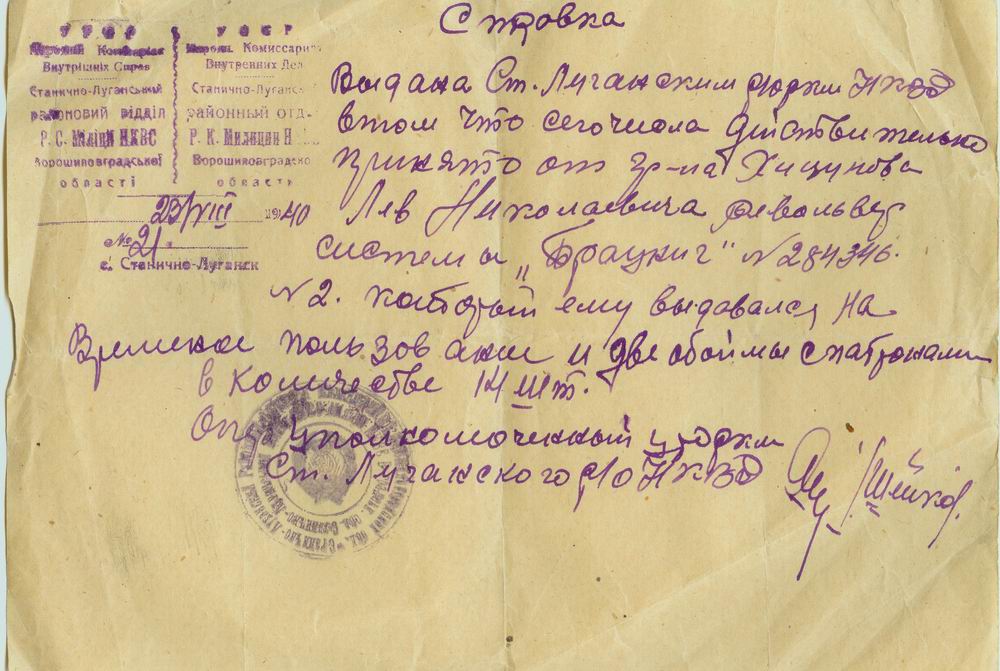 Справка
УРСР
Народний Комісаріат
Внутрішніх Справ
Станично-Луганський
районовий відділ
Р. С. Міліції НКВС
Ворошиловградської
області
УССР
Народн. Комиссариат
Внутренних Дел
Станично-Луганск
районный отд-
Р. К. Милиции Н
Ворошиловградско
област
23/VIII 1940
№ 21.
с. Станично-Луганск
Выдана Ст. Луганским НКВД
в том что сего числа действительно
принято от гр-на Хицунова
Лев Николаевича револьвер
системы „Браунинг" № 284346.
№ 2. который ему выдавался на
Времене пользование и две обоймы с патронами
в количестве 14 шт.
Опер Уполномоченный
Ст. Луганского РО НКВД